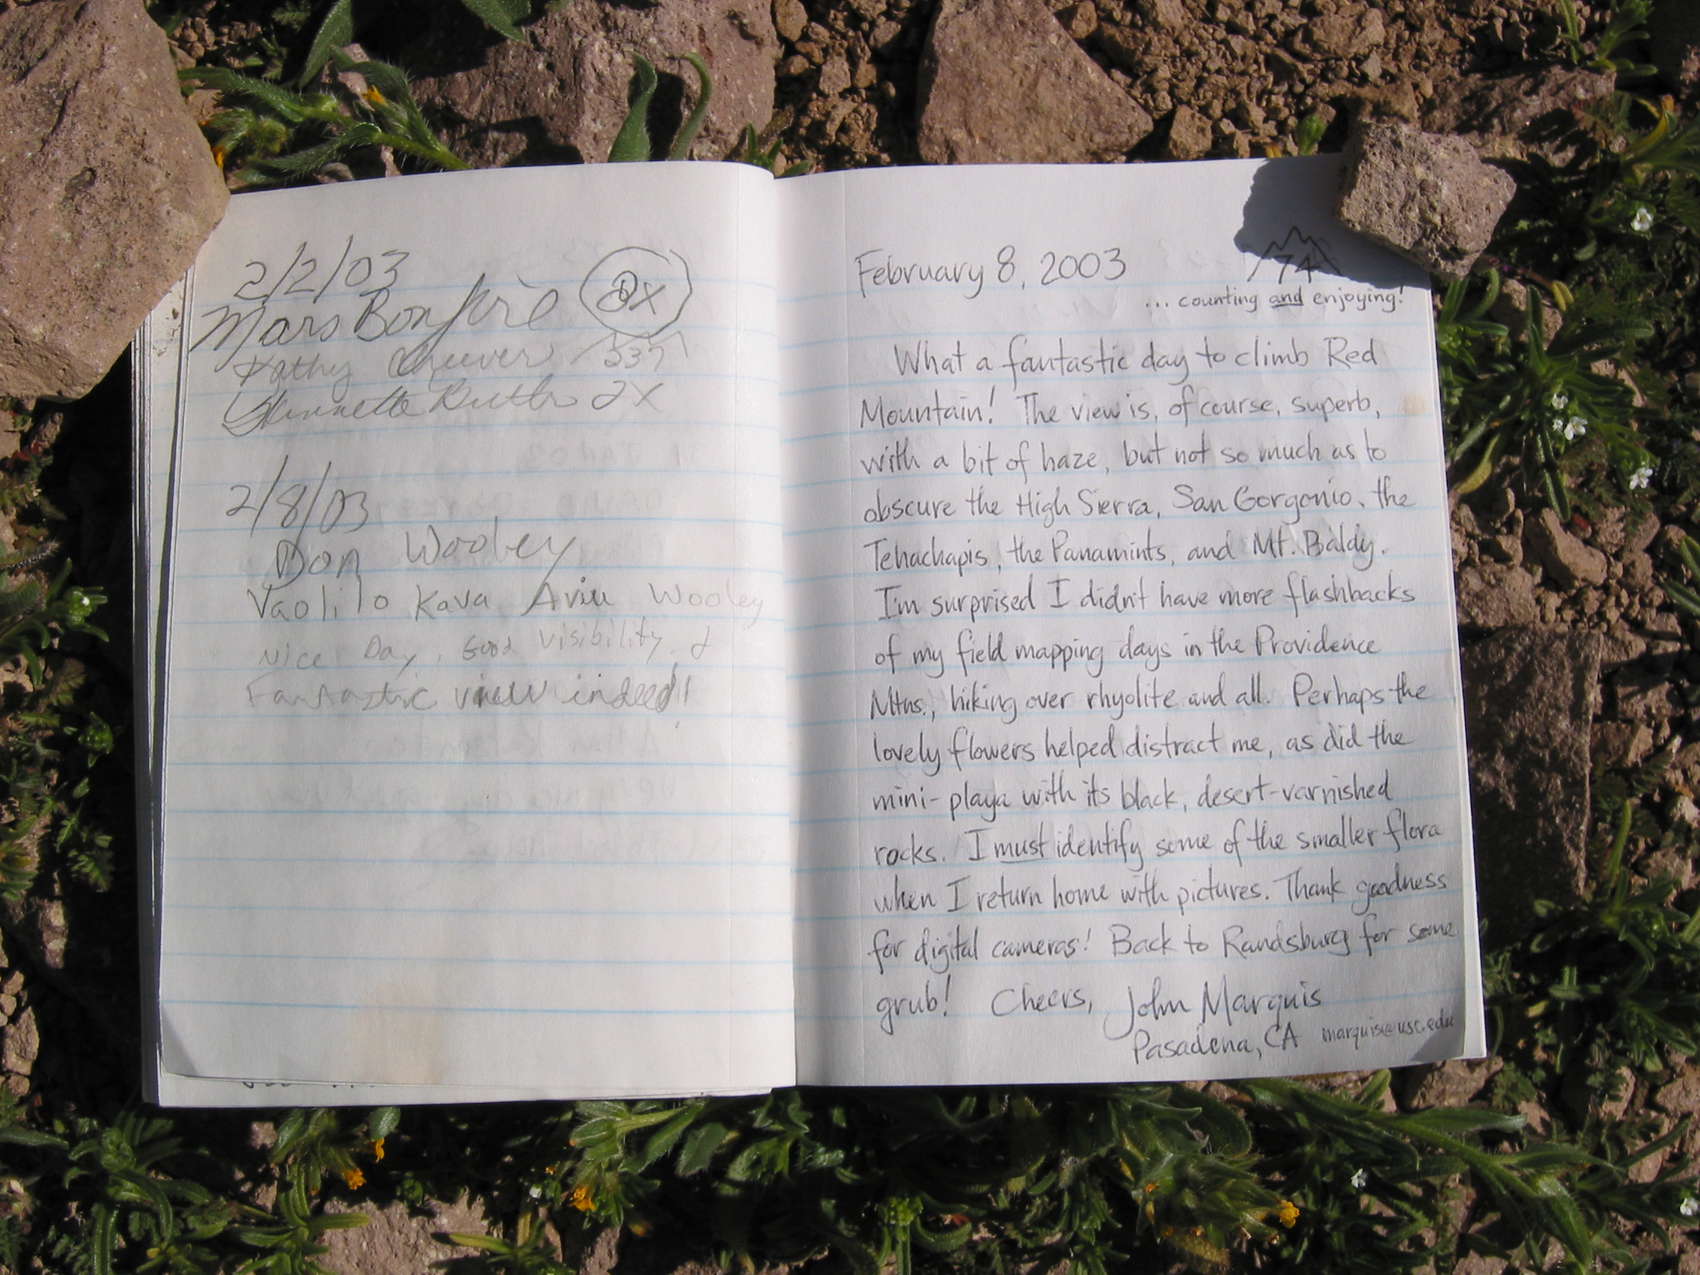 2/2/03
Mars Bonfire 2X
Kathy Cheever
2X
2/8/03
Don Wooley
Vaolilo Kava Wooley
Nice Day, Good Visibility, &
Fantastic view indeed!
February 8, 2003
74
... counting and enjoying!
What a fantastic day to climb Red
Mountain! The view is, of course, superb,
with a bit of haze, but not so much as to
obscure the High Sierra, San Gorgonio, the
Tehachapis, the Panamints, and Mt. Baldy.
I'm surprised I didn't have more flashbacks
of my field mapping days in the Providence
Mtns., hiking over rhyolite and all. Perhaps the
lovely flowers helped distract me, as did the
mini-playa with its black, desert-varnished
rocks. I must identify some of the smaller flora
when I return home with pictures. Thank goodness
for digital cameras! Back to Randsburg for some
grub! Cheers, John Marquis
Pasadena, CA marquis@usc.edu